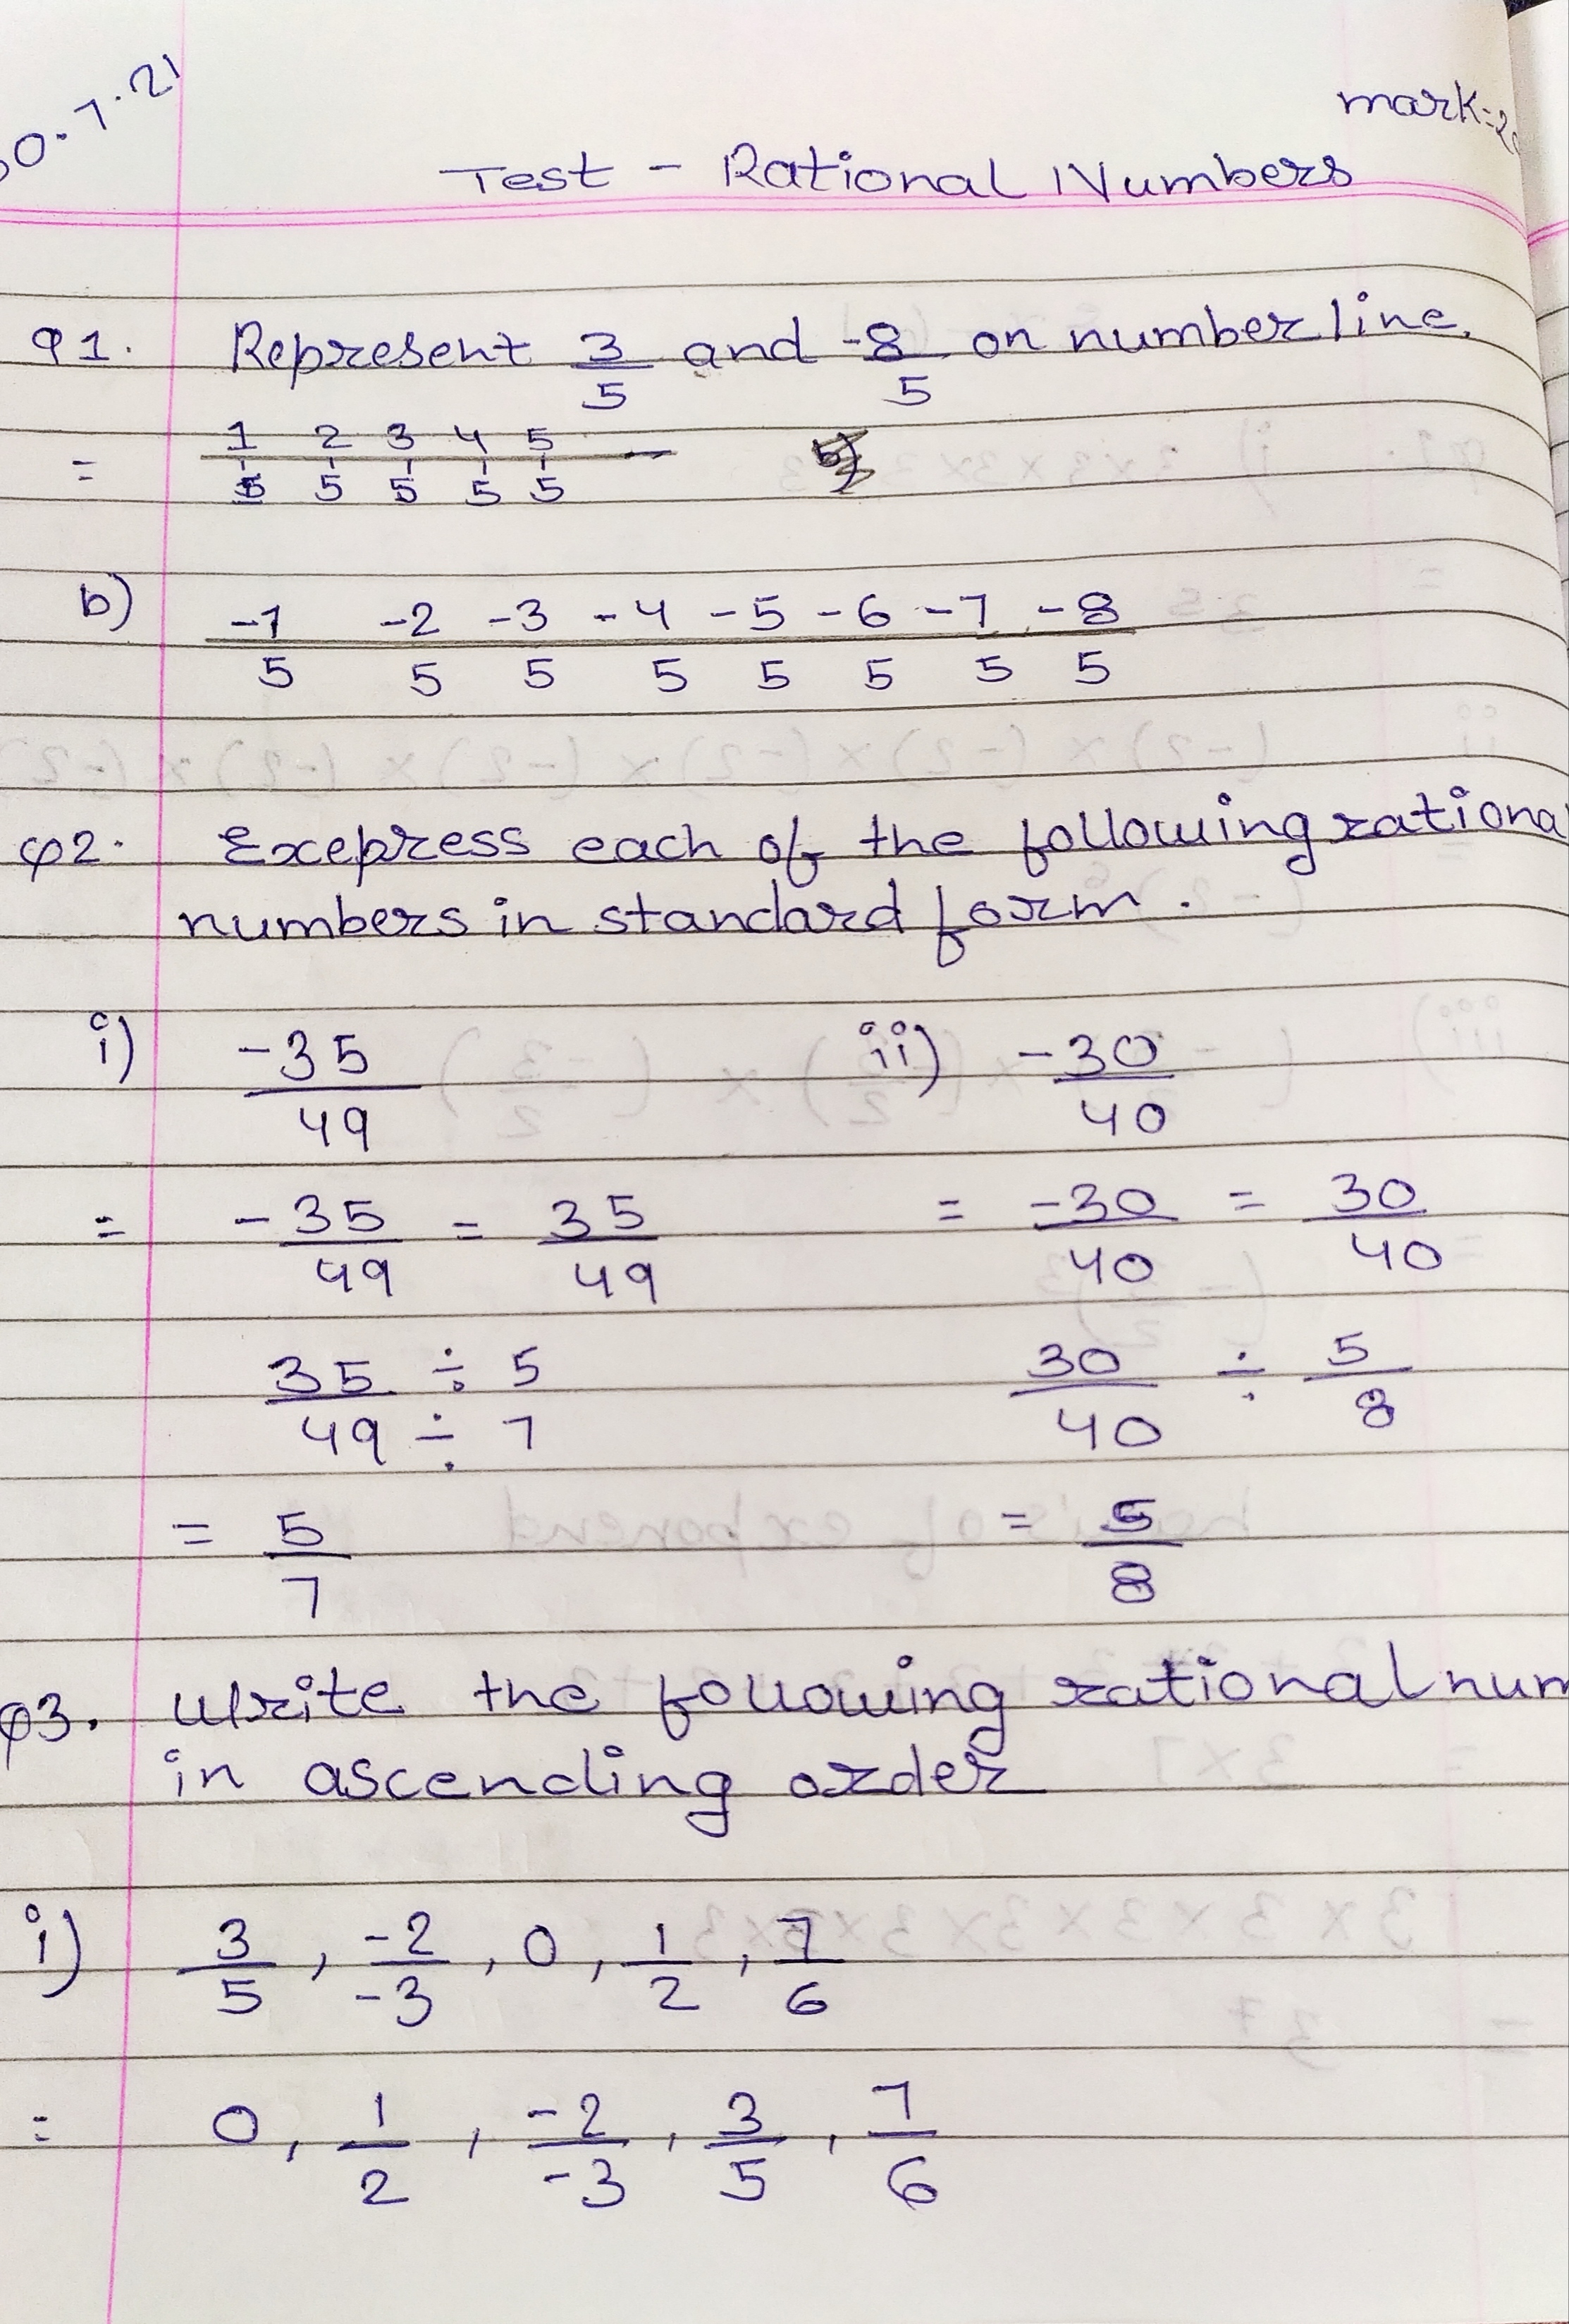 0.7.21
mark=
Test - Rational Numbers
Q1. Represent 3/5 and -8/5 on number line.
= 1/5 2/5 3/5 4/5 5/5
b) -1/5 -2/5 -3/5 -4/5 -5/5 -6/5 -7/5 -8/5
Q2. Excepress each of the following rationa
numbers in standard form.
i) -35/49 ii) -30/40
= -35/49 = 35/49 = -30/40 = 30/40
35 ÷ 5 / 49 ÷ 7 30/40 ÷ 5/8
= 5/7 = 5/8
Q3. Write the following rational num
in ascending order
i) 3/5, -2/-3, 0, 1/2, 7/6
= 0, 1/2, -2/-3, 3/5, 7/6